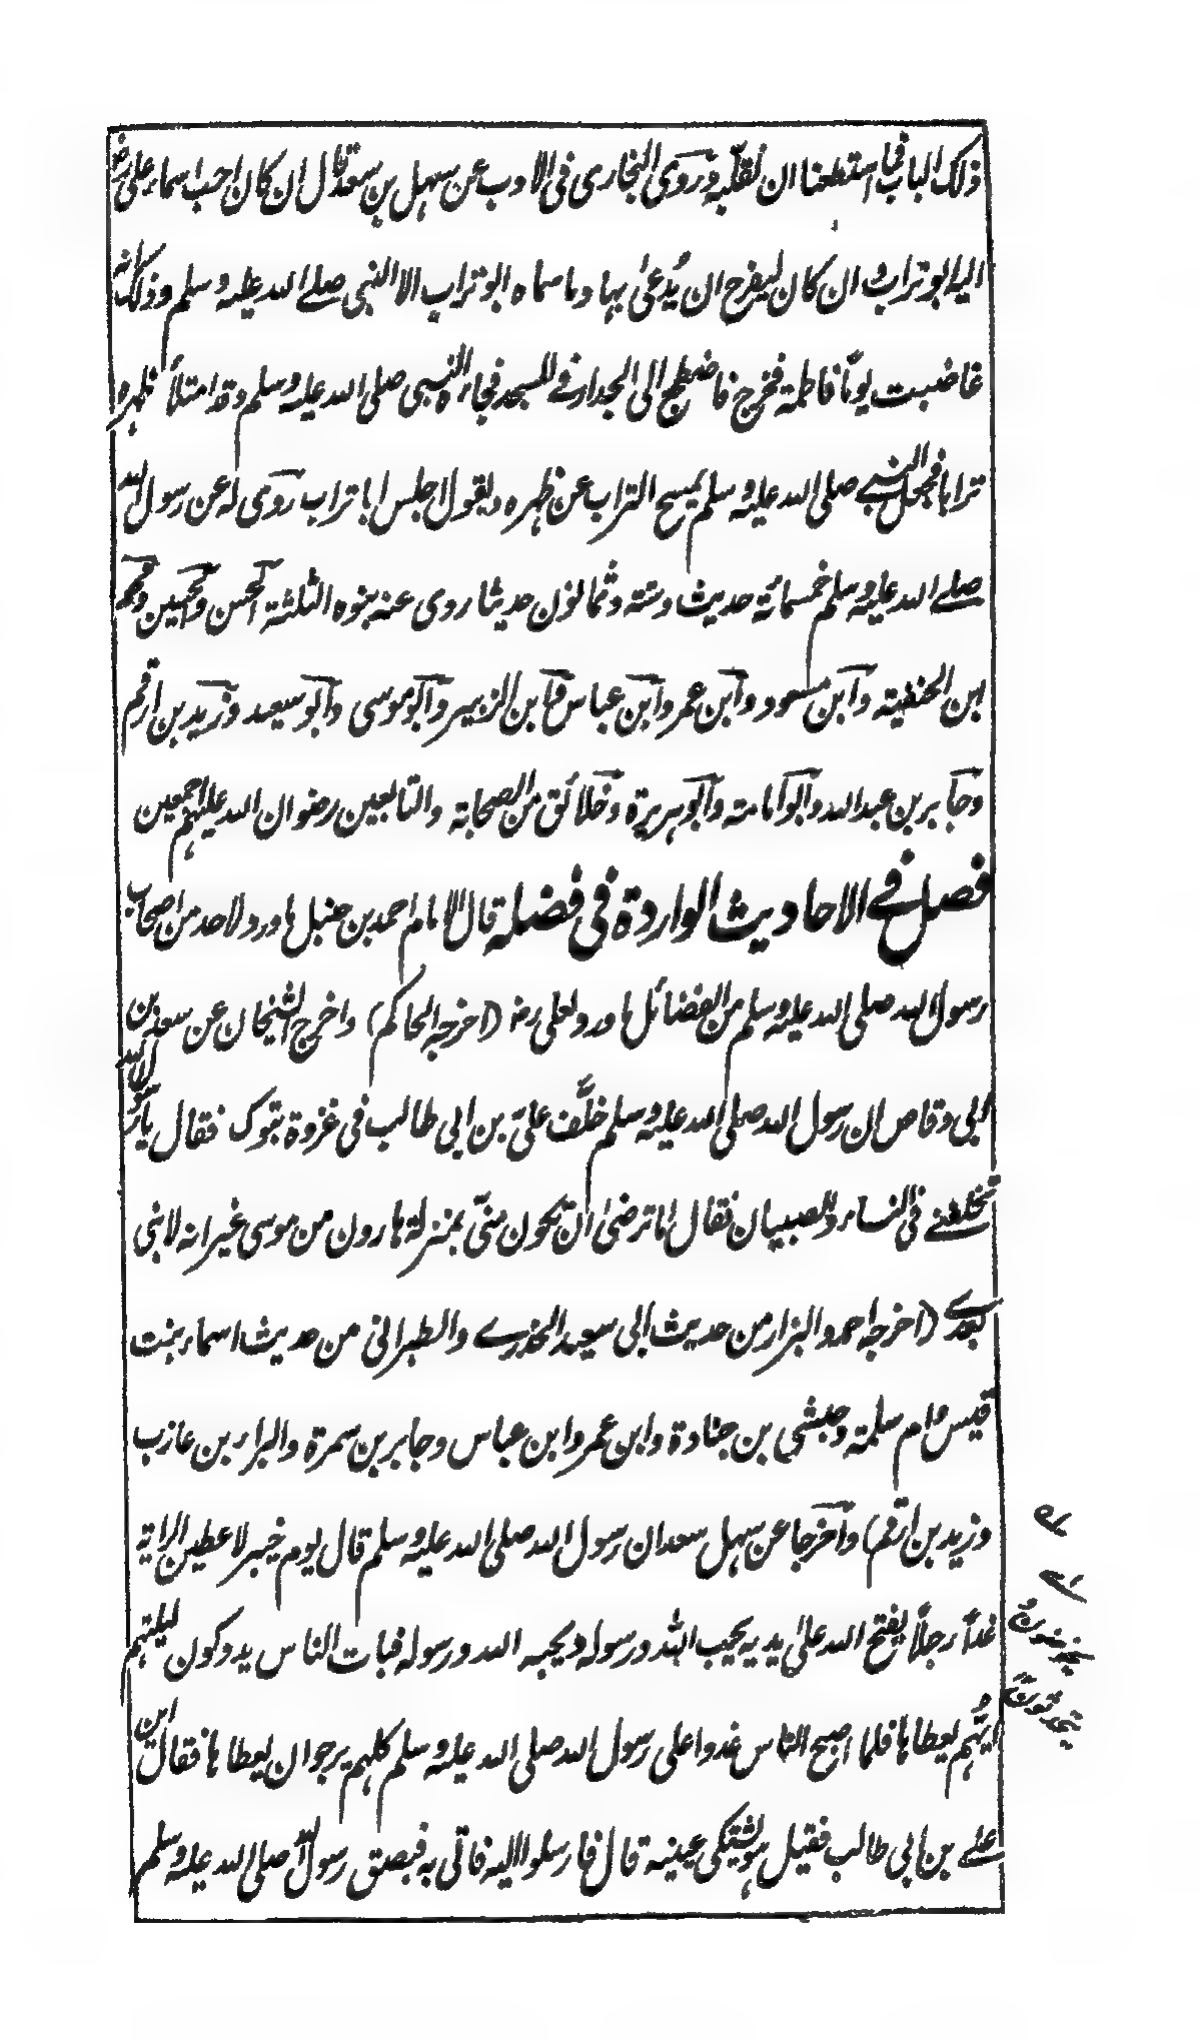 ذلك الباب فما استطعنا ان نقلبه وروى البخارى فى الادب عن سهل بن سعد قال ان كان احب اسماء على رض
اليه ابو تراب و ان كان ليفرح ان يُدعىٰ بها وما سماه ابو تراب الا النبى صلے الله عليه وسلم وذلك انه
غاضبت يومًا فاطمة فخرج فاضطجع الى الجدار فے المسجد فجاءه النبى صلى الله عليه وسلم وقد امتلأ ظهره
ترابا فجعل النبے صلى الله عليه وسلم يمسح التراب عن ظهره ويقول اجلس ابا تراب روى له عن رسول الله
صلے الله عليه وسلم خمسمائة حديث وستة وثمانون حديثا روى عنه بنوه الثلثة الحسن والحسين ومحمد
ابن الحنفية وابن مسعود وابن عمر وابن عباس وابن الزبير وابو موسى وابو سعيد وزيد بن ارقم
وجابر بن عبد الله وابو امامة وابو هريرة وخلائق من الصحابة والتابعين رضوان الله عليهم اجمعين
فصل فے الاحاديث الواردة فى فضله قال الامام احمد بن حنبل ما ورد لاحد من اصحاب
رسول الله صلى الله عليه وسلم من الفضائل ما ورد لعلى رضـ (اخرجه الحاكم) واخرج الشيخان عن سعد بن
ابى وقاص ان رسول الله صلى الله عليه وسلم خلَّف علىّ بن ابى طالب فى غزوة تبوك فقال يا رسول الله
تخلفنے فى النساء والصبيان فقال اما ترضىٰ ان تكون منّى بمنزلة هارون من موسى غير انه لا نبى
بعدے (اخرجه احمد والبزار من حديث ابى سعيد الخدرے والطبرانى من حديث اسماء بنت
قيس وام سلمة وحبشى بن جنادة وابن عمر وابن عباس وجابر بن سمرة والبراء بن عازب
وزيد بن ارقم) واخرجا عن سهل سعد ان رسول الله صلى الله عليه وسلم قال يوم خيبر لاعطين الراية
غداً رجلاً يفتح الله علىٰ يديه يحب الله ورسوله ويحبه الله ورسوله فبات الناس يدوكون ليلتهم
ايُّهم يعطاها فلما اصبح الناس غدوا على رسول الله صلى الله عليه وسلم كلهم يرجو ان يعطاها فقال اين
علے بن ابى طالب فقيل هو يشتكى عينيه قال فارسلوا اليه فاتى به فبصق رسول الله صلى الله عليه وسلم
يخوضون
يتحدثون